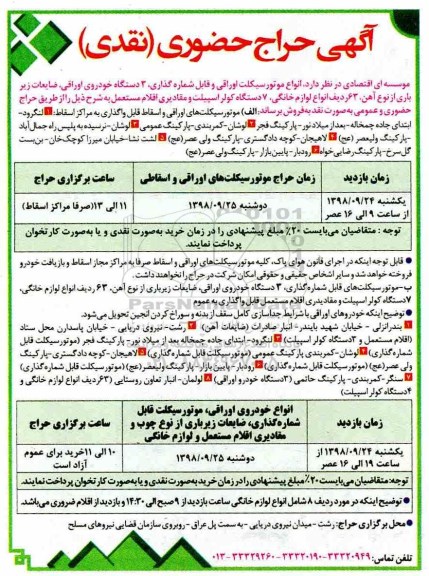 آگهی حراج حضوری (نقدی)
موسسه ای اقتصادی در نظر دارد، انواع موتورسیکلت اوراقی و قابل شماره گذاری، ۳ دستگاه خودروی اوراقی، ضایعات زیر
باری از نوع آهن، ۶۳ ردیف انواع لوازم خانگی، ۷ دستگاه کولر اسپیلت و مقادیری اقلام مستعمل به شرح ذیل را از طریق حراج
حضوری و عمومی به صورت نقد به فروش برساند: الف) موتورسیکلت‌های اوراقی و اسقاط قابل واگذاری به مراکز اسقاط: ۱ لنگرود-
ابتدای جاده چمخاله-بعد از میلاد نور- پارکینگ فجر ۲ لوشان-کمربندی-پارکینگ عمومی ۳ لوشان-نرسیده به پلیس راه جمال‌آباد
-پارکینگ ولیعصر (عج) ۴ لاهیجان-کوچه دادگستری-پارکینگ ولی عصر(عج) ۵ لشت نشا-خیابان میرزا کوچک‌خان-بن‌بست
گل سرخ-پارکینگ رضایی‌خواه ۶ رودبار- پایین‌بازار -پارکینگ ولی عصر(عج)
زمان بازدید
زمان حراج موتورسیکلت‌های اوراقی و اسقاطی
ساعت برگزاری حراج
یکشنبه ۱۳۹۸/۰۹/۲۴
از ساعت ۹ الی ۱۶ عصر
دوشنبه ۱۳۹۸/۰۹/۲۵
۱۱ الی ۱۳ (صرفا مراکز اسقاط)
توجه : متقاضیان می‌بایست ۲۰٪ مبلغ پیشنهادی را در زمان خرید به‌صورت نقدی و یا به‌صورت کارتخوان
پرداخت نمایند.
قابل توجه اینکه در اجرای قانون هوای پاک، کلیه موتورسیکلت‌های اوراقی و اسقاط صرفا به مراکز مجاز اسقاط و بازیافت خودرو
فروخته خواهد شد و سایر اشخاص حقیقی و حقوقی امکان شرکت در حراج را نخواهند داشت.
ب-موتورسیکلت‌های قابل شماره‌گذاری، ۳ دستگاه خودروی اوراقی، ضایعات زیرباری از نوع آهن، ۶۳ ردیف انواع لوازم خانگی،
۷ دستگاه کولر اسپیلت و مقادیری اقلام مستعمل قابل واگذاری به عموم
توضیح اینکه خودروهای اوراقی با شرایط جداسازی کامل سقف از بدنه و سوراخ کردن انجین تحویل می‌شود.
۱ بندرانزلی - خیابان شهید بایندر- انبار صادرات (ضایعات آهن) ۲ رشت-نیروی دریایی - خیابان پاسداران محل ستاد
(اقلام مستعمل و ۷ دستگاه کولر اسپیلت) ۳ لنگرود- ابتدای جاده چمخاله بعد از میلاد نور- پارکینگ فجر (موتورسیکلت قابل
شماره گذاری) ۴ لوشان-کمربندی پارکینگ عمومی (موتورسیکلت قابل شماره گذاری) ۵ لاهیجان-کوچه دادگستری-پارکینگ
ولی عصر(عج)(موتورسیکلت قابل شماره گذاری) ۶ رودبار- پایین بازار - پارکینگ ولیعصر(عج) (موتورسیکلت قابل شماره گذاری)
۷ سنگر-کمربندی- پارکینگ حاتمی (۳ دستگاه خودرو اوراقی) ۸ لولمان- انبار تعاون روستایی (۶۳ ردیف انواع لوازم خانگی و
۴ دستگاه کولر اسپیلت)
زمان بازدید
انواع خودروی اوراقی، موتورسیکلت قابل
شماره‌گذاری، ضایعات زیرباری از نوع چوب و
مقادیری اقلام مستعمل و لوازم خانگی
ساعت برگزاری حراج
یکشنبه ۱۳۹۸/۰۹/۲۴ از
ساعت ۹ الی ۱۶ عصر
دوشنبه ۱۳۹۸/۰۹/۲۵
۱۰ الی ۱۱ خرید برای عموم
آزاد است
توجه: متقاضیان می‌بایست ۲۰٪ مبلغ پیشنهادی را در زمان خرید به‌صورت نقدی و یا به‌صورت کارتخوان پرداخت نمایند.
توضیح اینکه در مورد ردیف ۸ شامل انواع لوازم خانگی ساعت بازدید از ۹ صبح الی ۱۴:۳۰ و بازدید از اقلام ضروری می‌باشد.
محل برگزاری حراج: رشت - میدان نیروی دریایی - به سمت پل عراق - روبروی سازمان قضایی نیروهای مسلح
تلفن تماس: ۳۳۳۲۰۹۴۹-۳۳۳۲۰۱۹۰-۳۳۳۲۹۲۶۰-۰۱۳